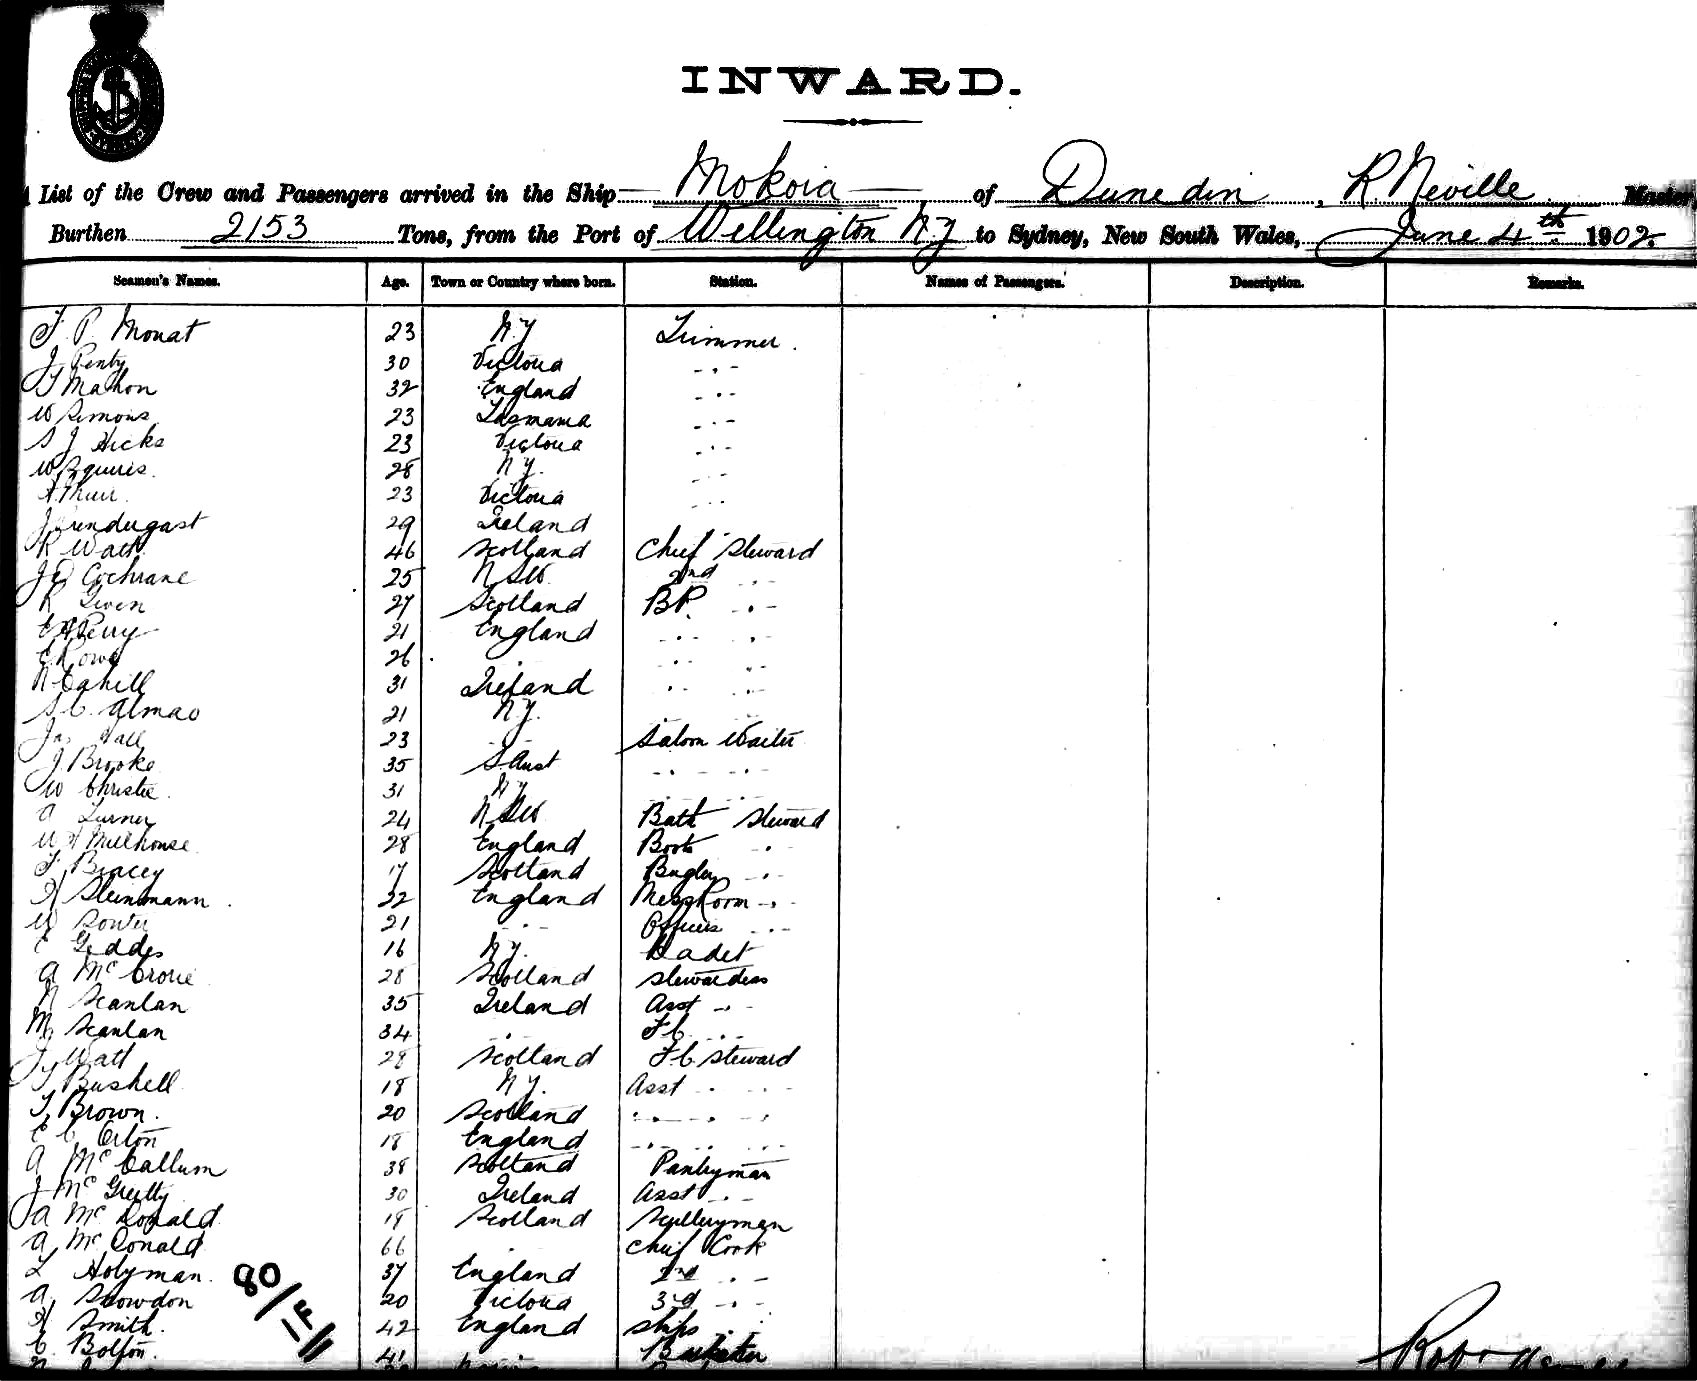 INWARD.
List of the Crew and Passengers arrived in the Ship Mokoia of Dunedin, R Neville Master,
Burthen 2153 Tons, from the Port of Wellington N.Z to Sydney, New South Wales, June 4th 1902.
Seamen's Names. Age. Town or Country where born. Station. Names of Passengers. Description. Remarks.
F. P. Mouat 23 N.Z Trimmer.
J Penty 30 Victoria - " -
J Mahon 32 England - " -
W Simons 23 Tasmania - " -
S J Hicks 23 Victoria - " -
W Squires. 28 N.Z. - " -
A. Muir. 23 Victoria - " -
J Prendergast 29 Ireland
R Watt. 46 Scotland Chief Steward
J D Cochrane 25 N S W. 2nd - " -
R Given 27 Scotland B.P. - " -
E A Perry 21 England - " - - " -
E Rowe 26 " - " - - " -
N Cahill 31 Ireland - " - - " -
S. C. Almao 21 N.Z.
Jas Hall 23 - " - Saloon Waiter
J. Brooke 35 S. Aust - " - - " -
W Christie. 31 N.Z - " - - " -
A Turner 24 N S W Bath Steward
W H Millhouse 28 England Boots - " -
F. Bracey 17 Scotland Bugler - " -
H Steinmann. 32 England Mess Room - " -
W Souter 21 - " - Officers - " -
E Geddes 16 N.Z. Cadet
A McCrorie 28 Scotland Stewardess
N Scanlan 35 Ireland Asst - " -
M Scanlan 34 - " - F.C. - " -
J Watt 28 Scotland F.C. Steward
T Bushell 18 N.Z. Asst - " - - " -
T. Brown. 20 Scotland - " - - " -
E C Orton 18 England - " - - " -
A McCallum 38 Scotland Pantryman
J McGretty 30 Ireland Asst - " -
A McDonald 18 Scotland Sculleryman
A McDonald 66 " Chief Cook
L Holyman. 37 England 2nd - " -
A. Snowdon 20 Victoria 3rd - " -
H Smith. 42 England Ships - " -
C. Bolton. 41
80/1F/11